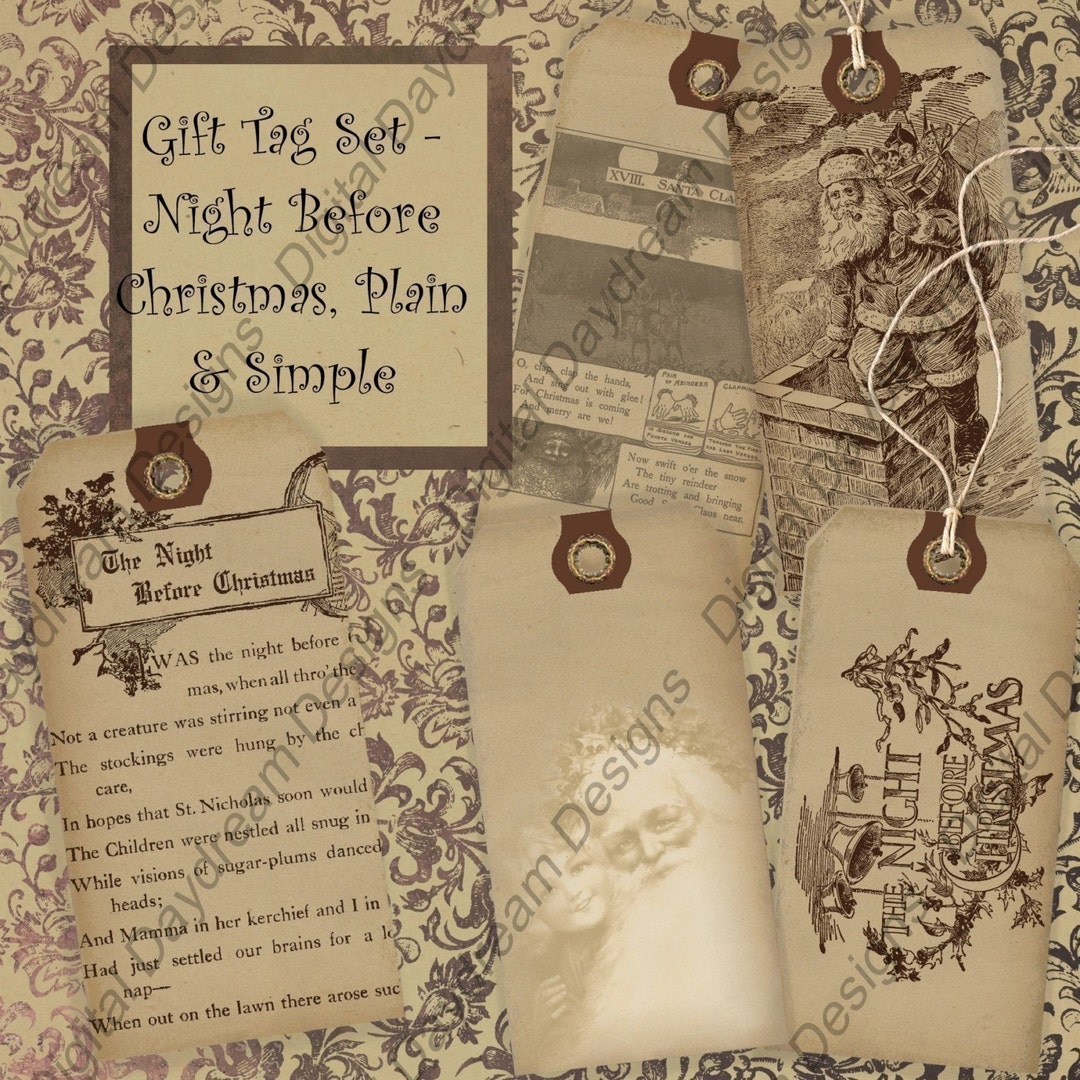 Gift Tag Set -
Night Before
Christmas, Plain
& Simple
XVIII. SANTA CLA
O, clap clap the hands,
And sing out with glee!
For Christmas is coming
And merry are we!
PAIR OF REINDEER
CLAPPING
Now swift o'er the snow
The tiny reindeer
Are trotting and bringing
Good Claus near.
The Night
Before Christmas
TWAS the night before
mas, when all thro' the
Not a creature was stirring not even a
The stockings were hung by the ch
care,
In hopes that St. Nicholas soon would
The Children were nestled all snug in
While visions of sugar-plums danced
heads;
And Mamma in her kerchief and I in
Had just settled our brains for a lo
nap—
When out on the lawn there arose suc
THE NIGHT
BEFORE
CHRISTMAS
Digital Daydream Designs